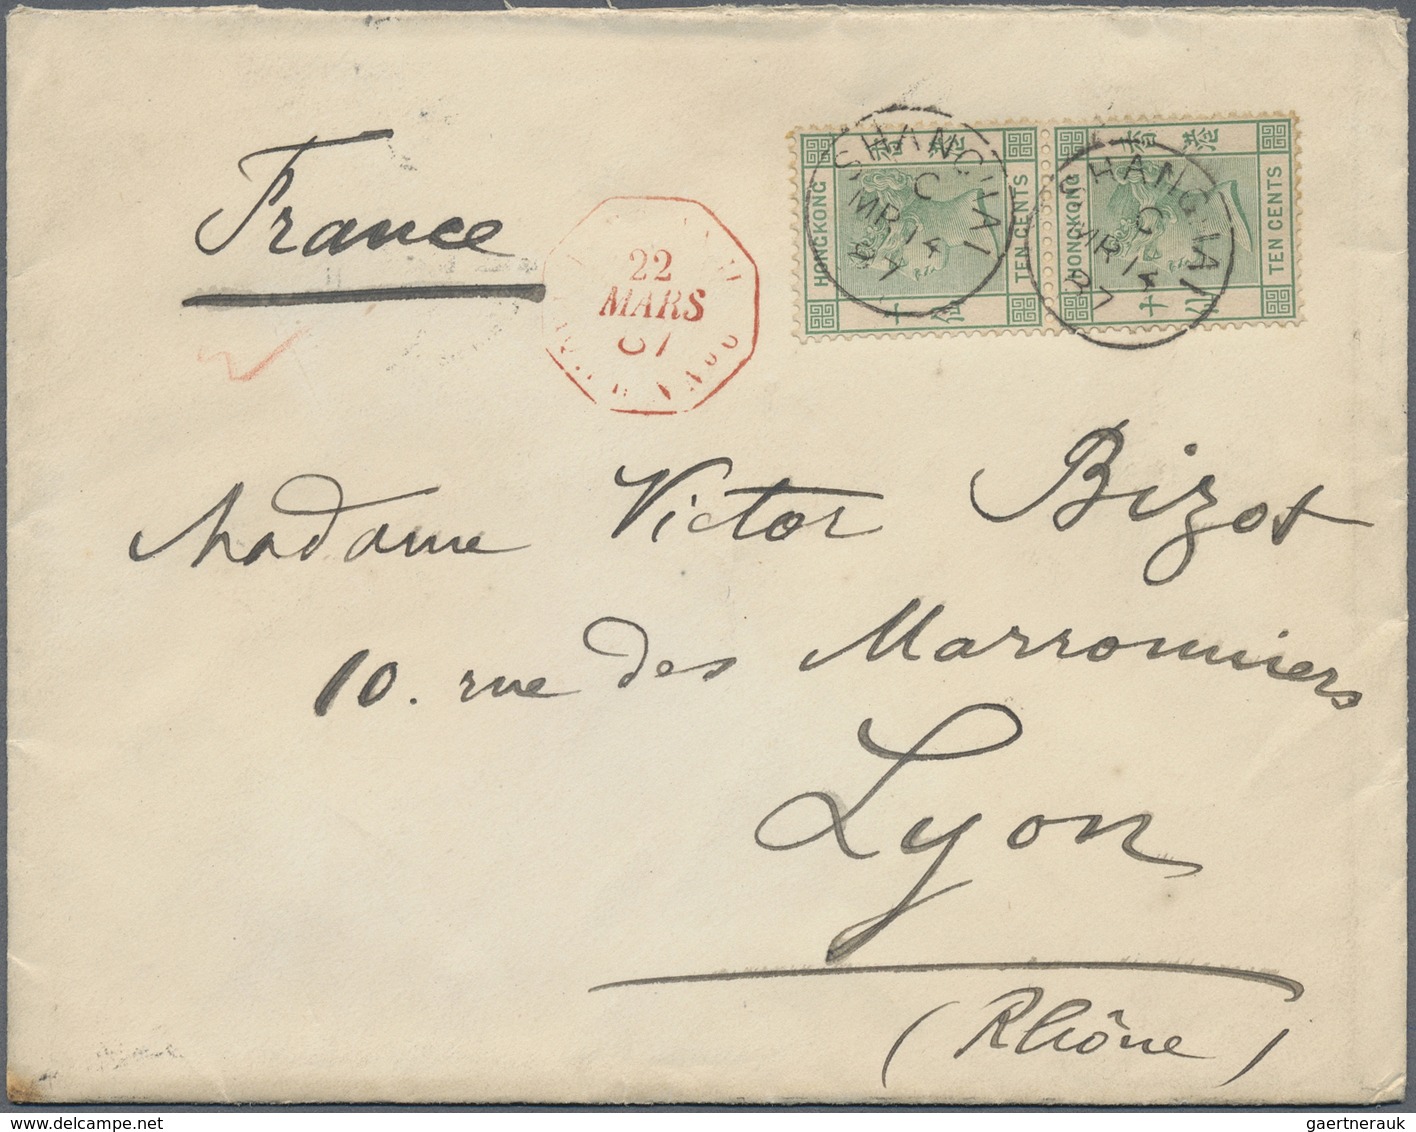 France
22
MARS
87
SHANGHAI
C
MR 14
87
SHANGHAI
C
MR 14
87
HONGKONG
TEN CENTS
HONGKONG
香港
TEN CENTS
Madame Victor Bizot
10. rue des Marronniers
Lyon
(Rhône)
gaertnerauk